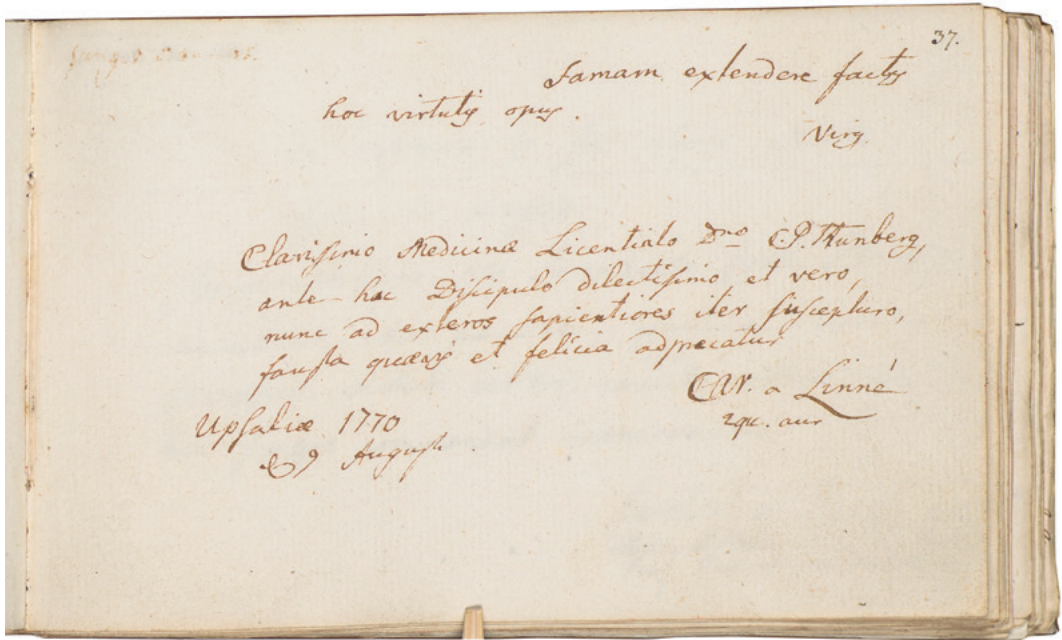 37.
Famam extendere factis
hoc virtutis opus.
Virg.
Clarissimo Medicinæ Licentiato Dno C.P. Thunberg,
ante hac Discipulo dilectissimo et vero,
nunc ad exteros sapientiores iter suscepturo,
fausta quævis et felicia adprecatur
Car. a Linné
equ. aur
Upsaliæ 1770
d 9 August